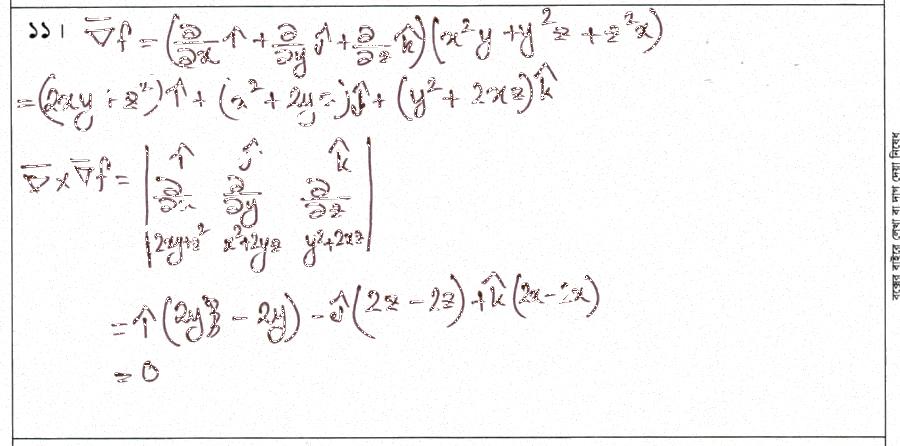 ১১। ∇̅f = (∂/∂x î + ∂/∂y ĵ + ∂/∂z k̂)(x²y + y²z + z²x)
= (2xy + z²)î + (x² + 2yz)ĵ + (y² + 2xz)k̂
∇̅ × ∇̅f = | î ĵ k̂ |
| ∂/∂x ∂/∂y ∂/∂z |
| 2xy+z² x²+2yz y²+2xz |
= î(2y - 2y) - ĵ(2z - 2z) + k̂(2x - 2x)
= 0
বক্সের বাইরে লেখা বা দাগ দেয়া নিষেধ